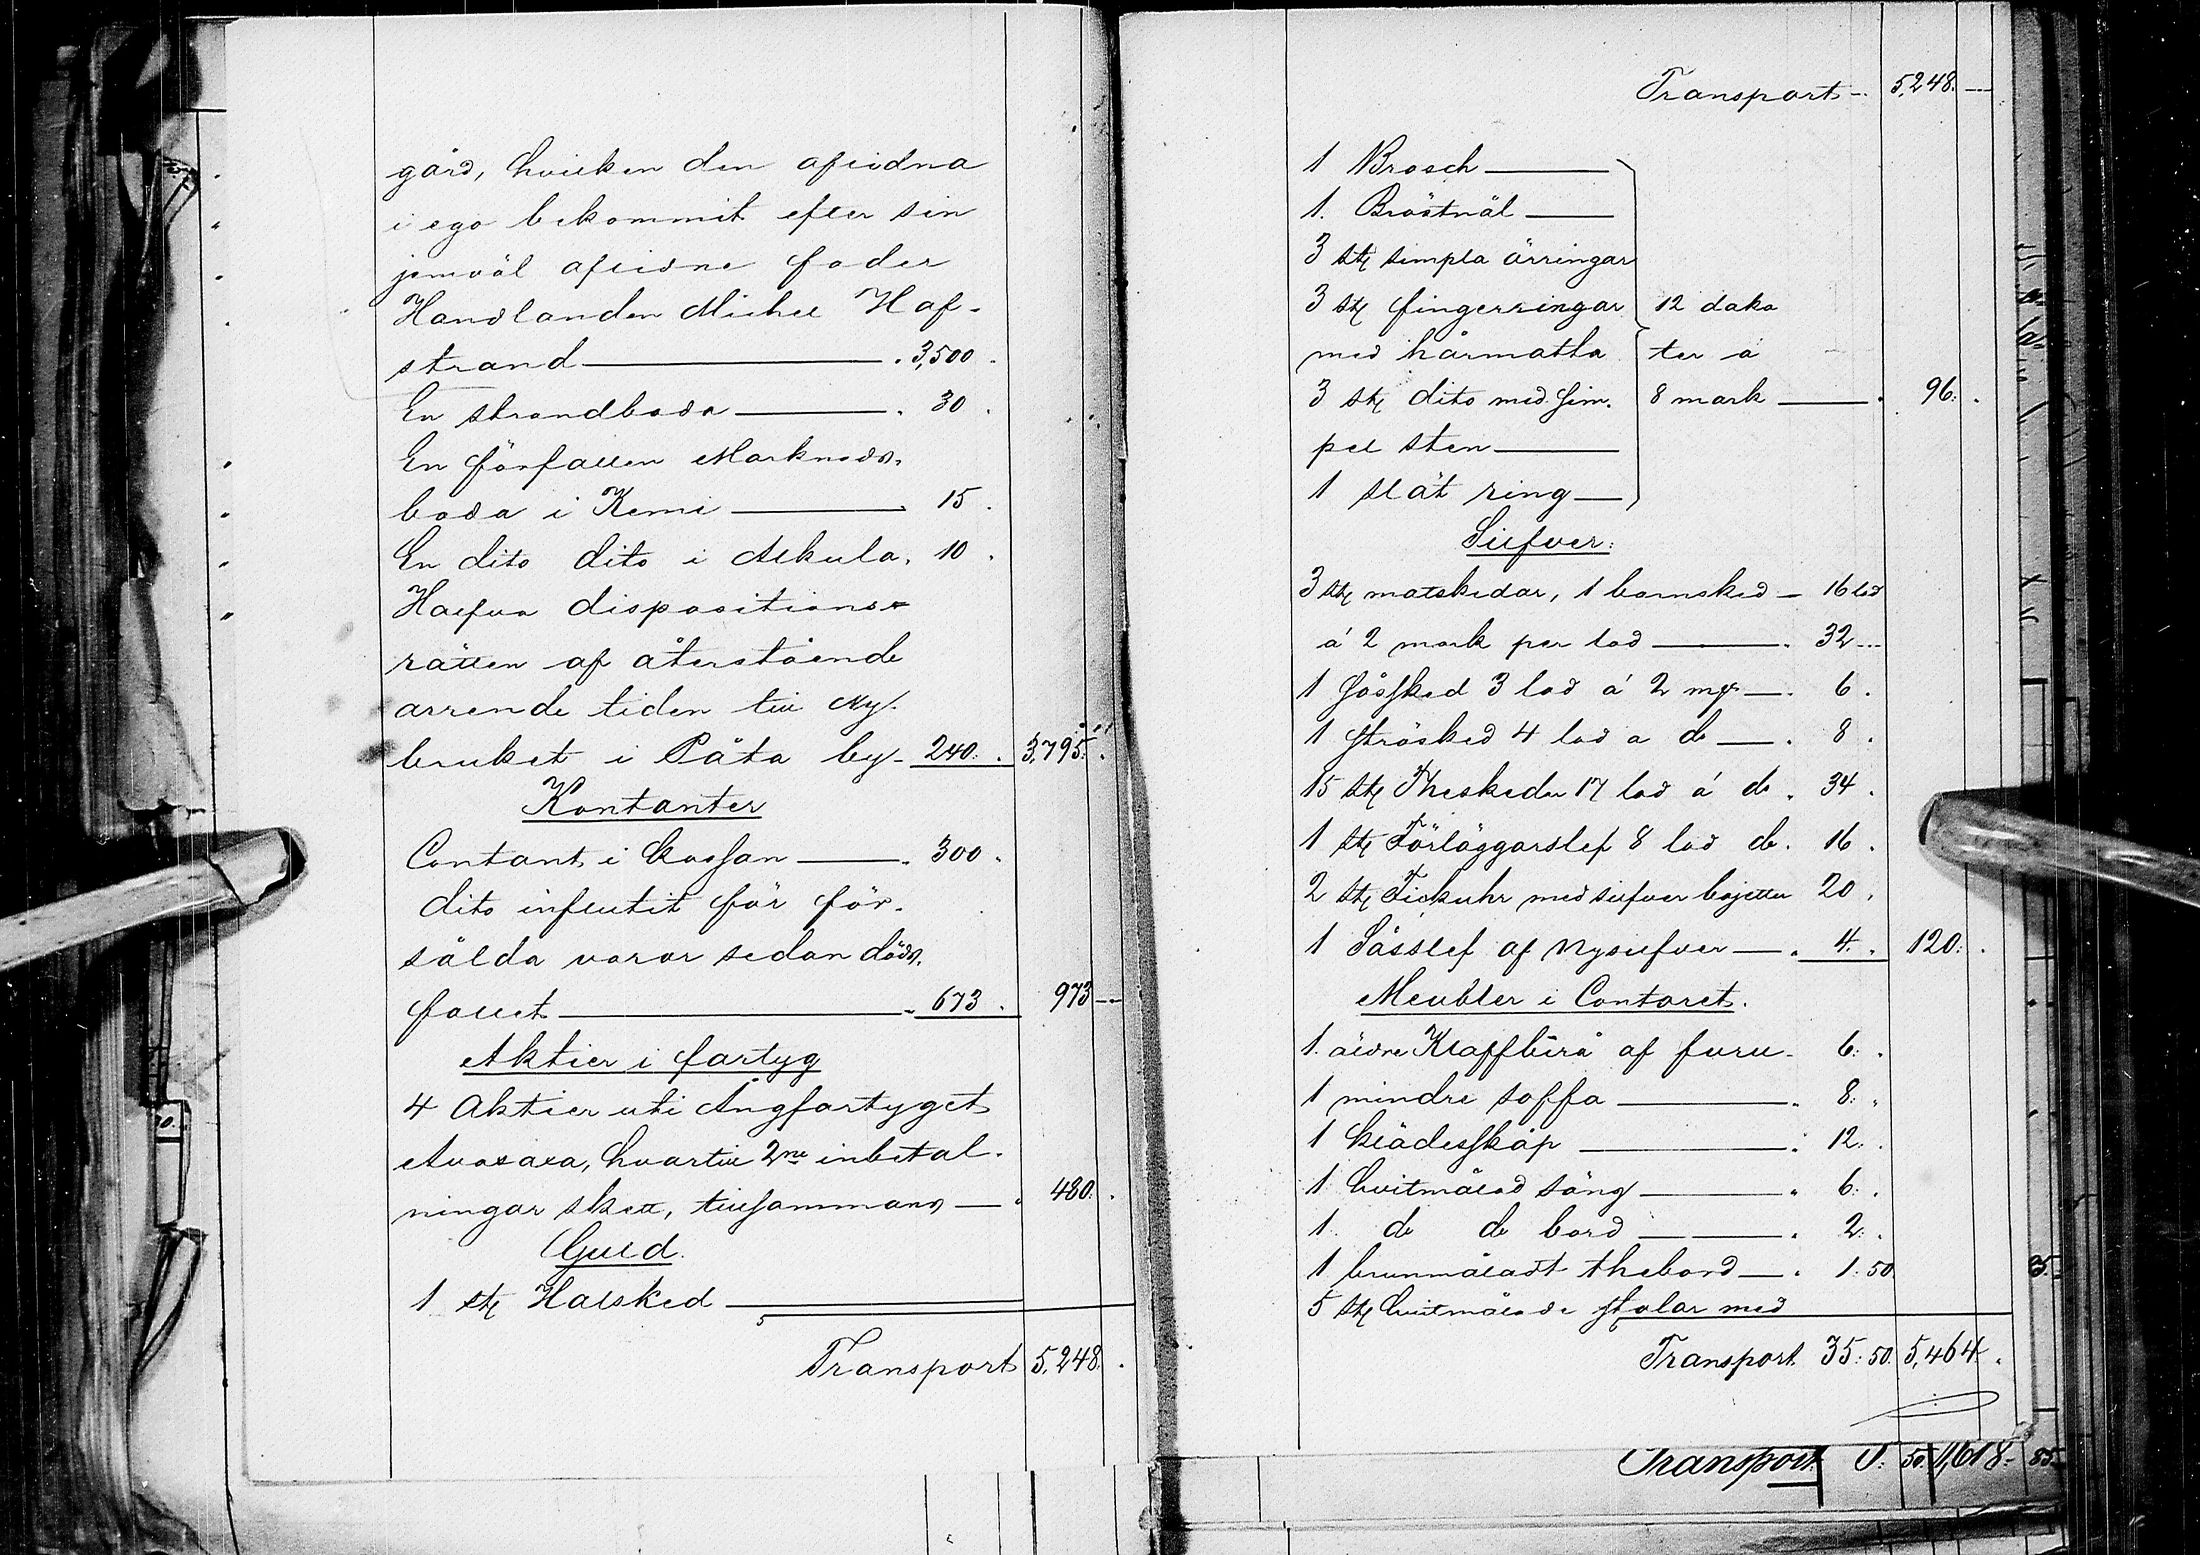 gård, hvilken den aflidna
i ego bekommit efter sin
jemväl aflidne fader
Handlanden Michel Haf-
strand . 3,500 .
En strandboda . 30 .
En förfallen Marknads-
boda i Kemi . 15 .
En dito dito i Alkula . 10 .
Halfva dispositions-
rätten af återstående
arrende tiden till Ny-
bruket i Päkä by - 240: . 3,795: .
Kontanter
Contant i kassan . 300 .
dito influtit för för-
sålda varor sedan döds-
fallet . 673 . 973 —
Aktier i fartyg
4 Aktier uti Ångfartyget
Avasaxa, hvartill 2ne inbetal-
ningar skett, tillsammans — . 480. .
Guld.
1 st. Halsked
Transport 5,248. .
Transport - 5,248. —
1 Brosch
1. Bröstnål
3 st. simpla örringar
3 st. fingerringar 12 duka
med hårmatta ter á
3 st. dito med sim- 8 mark — . 96. .
pel sten
1 slät ring
Silfver:
3 st. matskedar, 1 barnsked — 16 lod
á 2 mark per lod — . 32 —
1 såssked 3 lod á 2 mk — . 6 .
1 ströskед 4 lod a do — . 8 .
15 st. Theskedar 17 lod á do . 34 .
1 st. Förläggarslef 8 lod do . 16 .
2 st. Fickuhr med silfver bojetter 20 .
1 Såsslef af Nysilfver — . 4. . 120: .
Meubler i Contoret.
1. äldre Klaffbirå af furu - 6: .
1 mindre soffa . 8: .
1 klädesskåp . 12: .
1 hvitmålad säng . 6: .
1. do do bord . 2: .
1 brunmåladt thebord — . 1: 50
5 st. hvitmålade stolar med
Transport 35: 50. 5,464. .
Transport 50. 1,618. 85